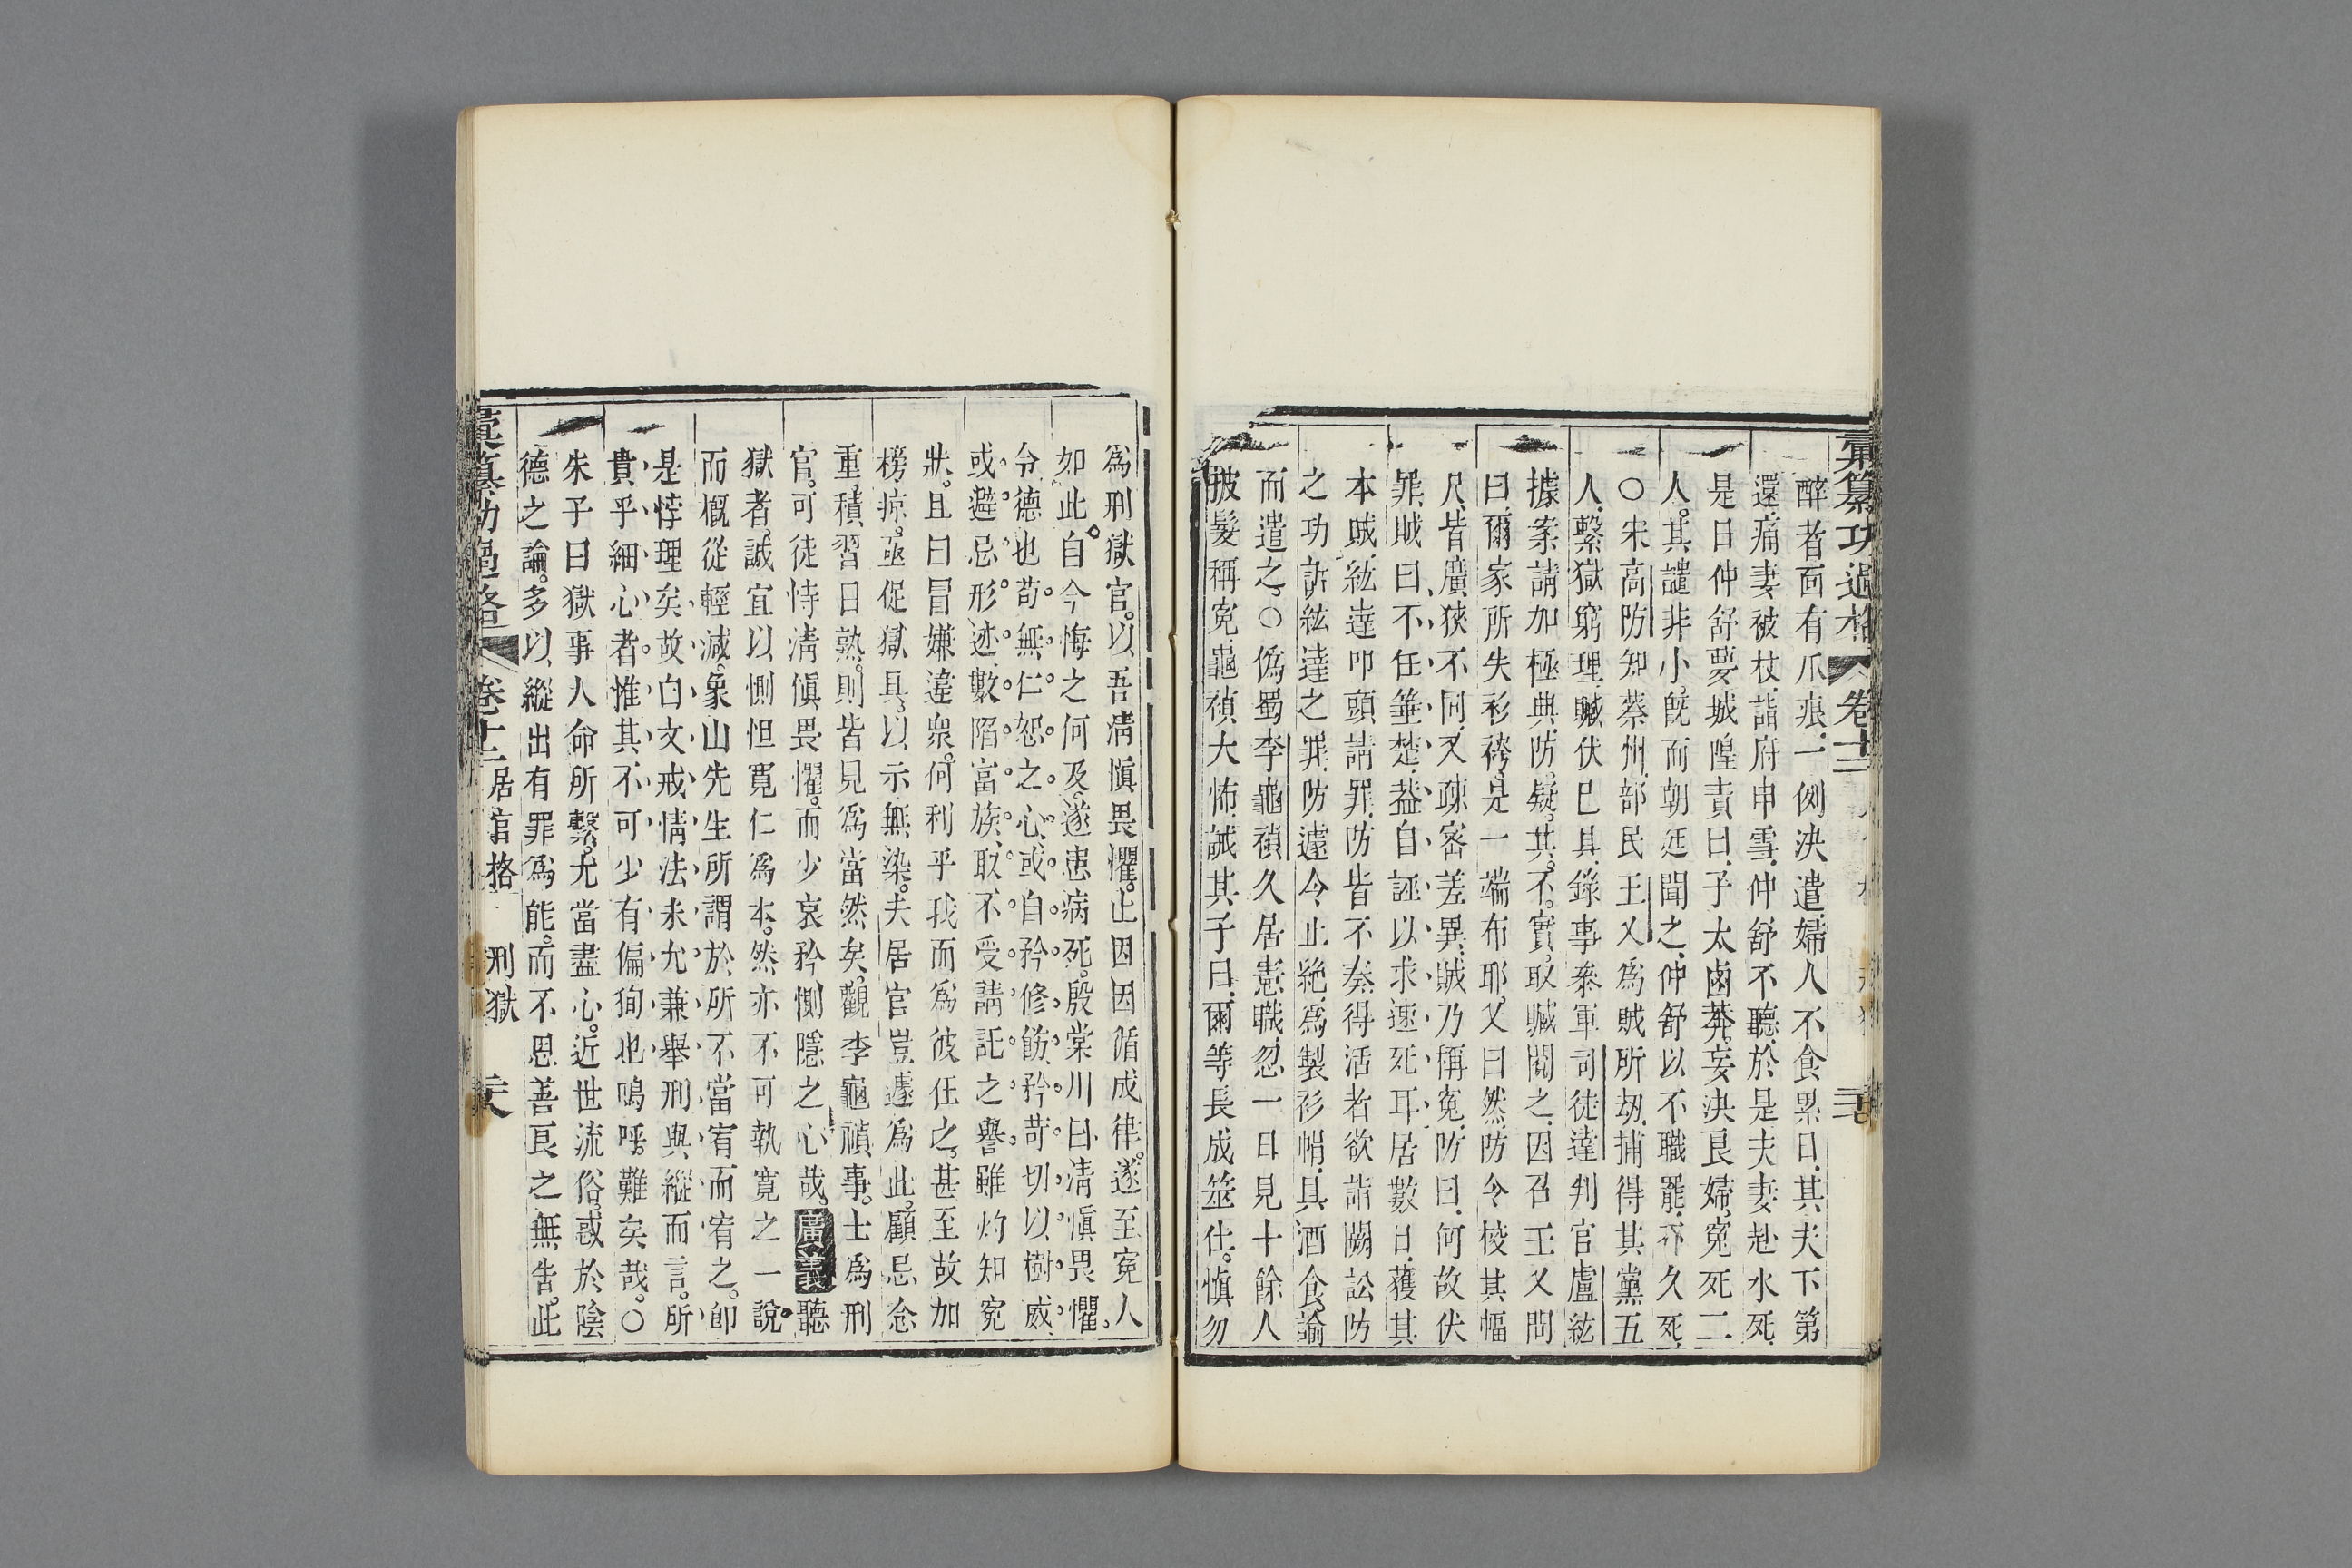 彙纂功過格 卷十二
醉者面有爪痕一例決遣婦人不食累日其夫下第
還痛妻被杖詣府申雪仲舒不聽於是夫妻赴水死
是日仲舒夢城隍責曰子太鹵莽妄決良婦寃死二
人其譴非小旣而朝廷聞之仲舒以不職罷不久死
○宋高防知蔡州部民王乂爲賊所刼捕得其黨五
人繫獄窮理贓伏已具錄事參軍司徒達判官盧紘
據案請加極典防疑其不實取贓閱之因召王乂問
曰爾家所失衫袴是一端布耶乂曰然防令校其幅
尺皆廣狹不同又疎密差異賊乃稱寃防曰何故伏
罪賊曰不任箠楚葢自誣以求速死耳居數日獲其
本賊紘達叩頭請罪防皆不奏得活者欲詣闕訟防
之功訴紘達之罪防遽令止絶爲製衫帽具酒食諭
而遣之○僞蜀李龜禎久居憲職忽一日見十餘人
披髮稱寃龜禎大怖誡其子曰爾等長成筮仕愼勿
爲刑獄官以吾淸愼畏懼止因因循成律遂至寃人
如此自今悔之何及遂患病死殷棠川曰淸愼畏懼
令德也苟無仁恕之心或自矜修飭矜苛切以樹威
或避忌形迹數陷富族取不受請託之譽雖灼知寃
狀且曰冒嫌違衆何利乎我而爲彼任之甚至故加
榜掠亟促獄具以示無染夫居官豈遽爲此顧忌念
重積習日熟則皆見爲當然矣觀李龜禎事士爲刑
官可徒恃淸愼畏懼而少哀矜惻隱之心哉廣義聽
獄者誠宜以惻怛寬仁爲本然亦不可執寬之一說
而槪從輕減象山先生所謂於所不當宥而宥之卽
是悖理矣故白文戒情法未允兼舉刑與縱而言所
貴乎細心者惟其不可少有偏狥也嗚呼難矣哉○
朱子曰獄事人命所繫尤當盡心近世流俗惑於陰
德之論多以縱出有罪爲能而不思善良之無告此
彙纂功過格 卷十二 居官格 刑獄 六